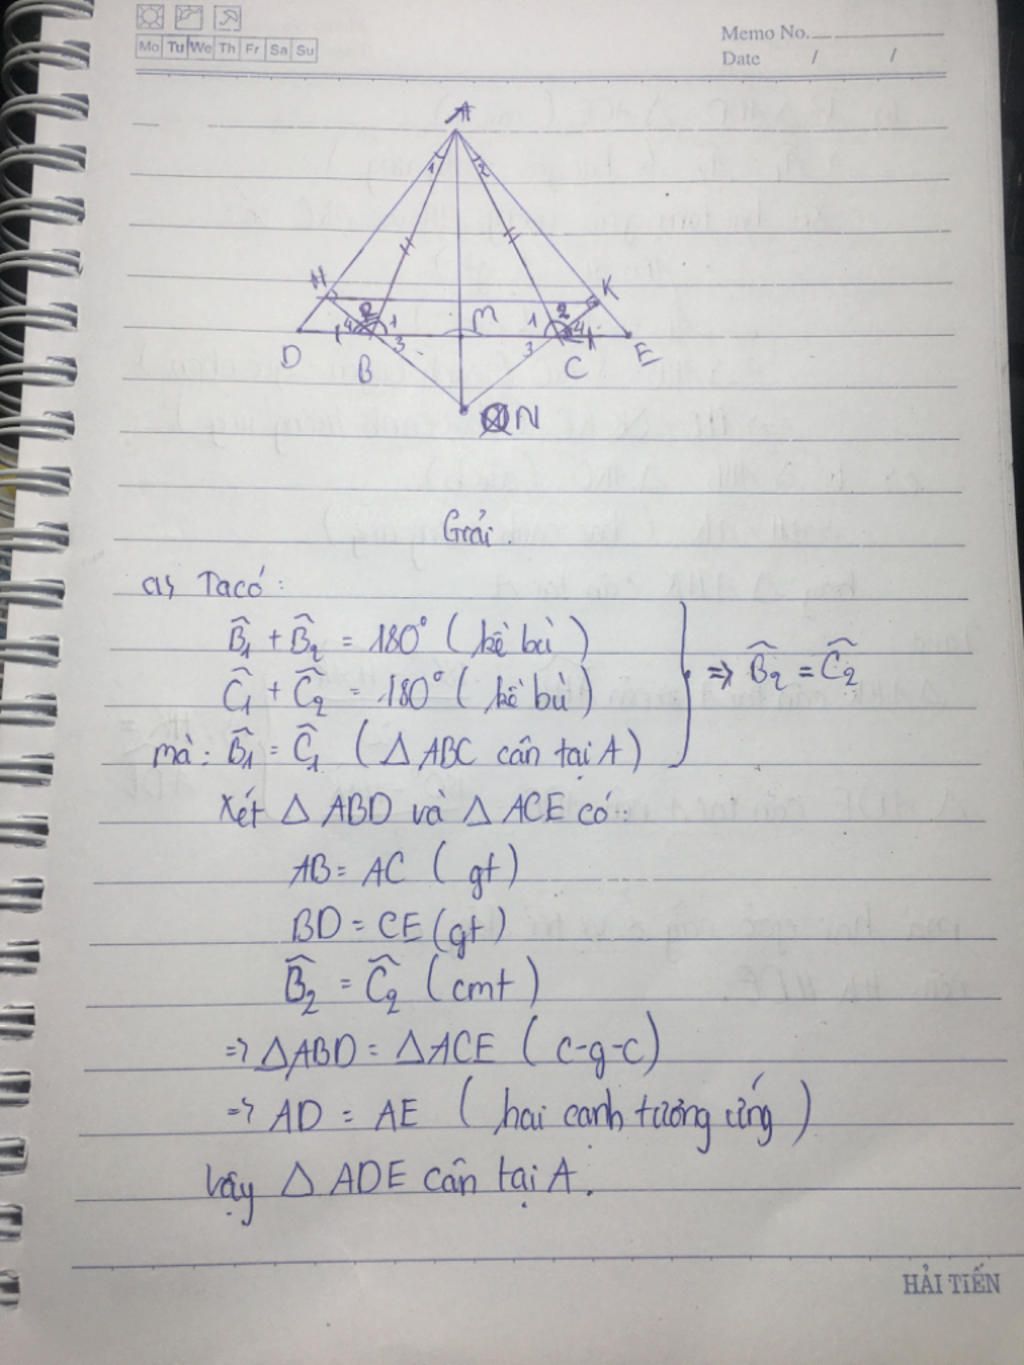 Memo No.
Mo Tu We Th Fr Sa Su
Date / /
A
1 2
H K
2 1 M 1 2
4 3 3 4
D B C E
N
Giải.
a, Ta có:
B̂₁ + B̂₂ = 180° ( kề bù )
Ĉ₁ + Ĉ₂ = 180° ( kề bù ) => B̂₂ = Ĉ₂
mà: B̂₁ = Ĉ₁ ( △ ABC cân tại A )
Xét △ ABD và △ ACE có:
AB = AC ( gt )
BD = CE (gt)
B̂₂ = Ĉ₂ (cmt)
=> △ABD = △ACE ( c-g-c)
=> AD = AE ( hai cạnh tương ứng )
Vậy △ ADE cân tại A.
HẢI TIẾN